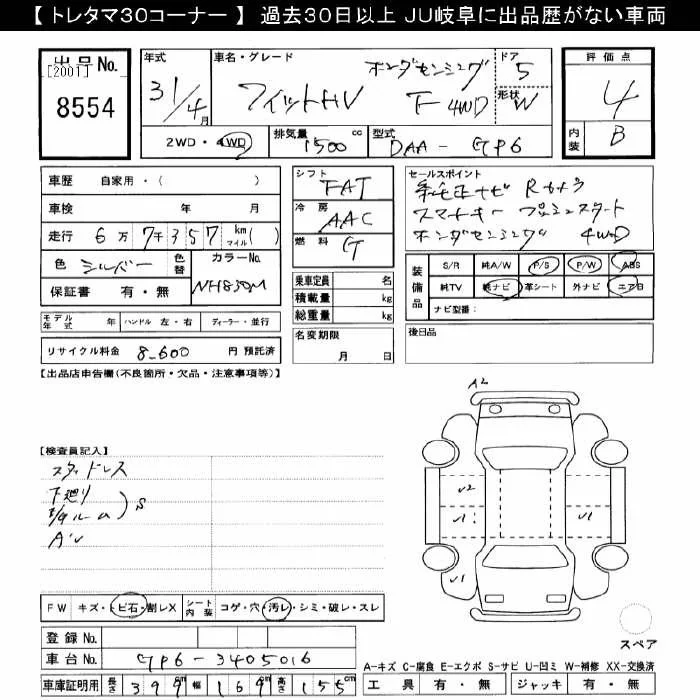 【 トレタマ30コーナー 】 過去30日以上 JU岐阜に出品歴がない車両
出品No.
[2001]
8554
年式
31/4月
車名・グレード
ホンダセンシング
フィットHV F 4WD
ドア
5
形状
W
評価点
4
内装
B
2WD・4WD
排気量 1500 cc
型式 DAA - GP6
車歴 自家用・( )
車検 年 月
走行 6万7千357 km マイル( )
色 シルバー 色替 カラーNo. NH830M
保証書 有・無
シフト FAT
冷房 AAC
燃料 G
乗車定員 名
積載量 kg
総重量 kg
セールスポイント
純正ナビ Rカメラ
スマートキー プッシュスタート
ホンダセンシング 4WD
装備品
S/R 純A/W P/S P/W ABS
純TV 純ナビ 革シート 外ナビ エアB
ナビ型番:
モデル年式 年 ハンドル 左・右 ディーラー・並行
名変期限 月 日
後日品
リサイクル料金 8,600 円 預託済
【出品店申告欄(不良箇所・欠品・注意事項等)】
【検査員記入】
スタッドレス
下廻り
E/gルーム )S
A'U
A2
U2
U1
U1
U1
FW キズ・トビ石・割レX シート内装 コゲ・穴・汚レ・シミ・破レ・スレ
登録No.
車台No. GP6-3405016
スペア
A-キズ C-腐食 E-エクボ S-サビ U-凹ミ W-補修 XX-交換済
車庫証明用 長さ 399cm 幅 169cm 高さ 155cm
工具 有・無 ジャッキ 有・無